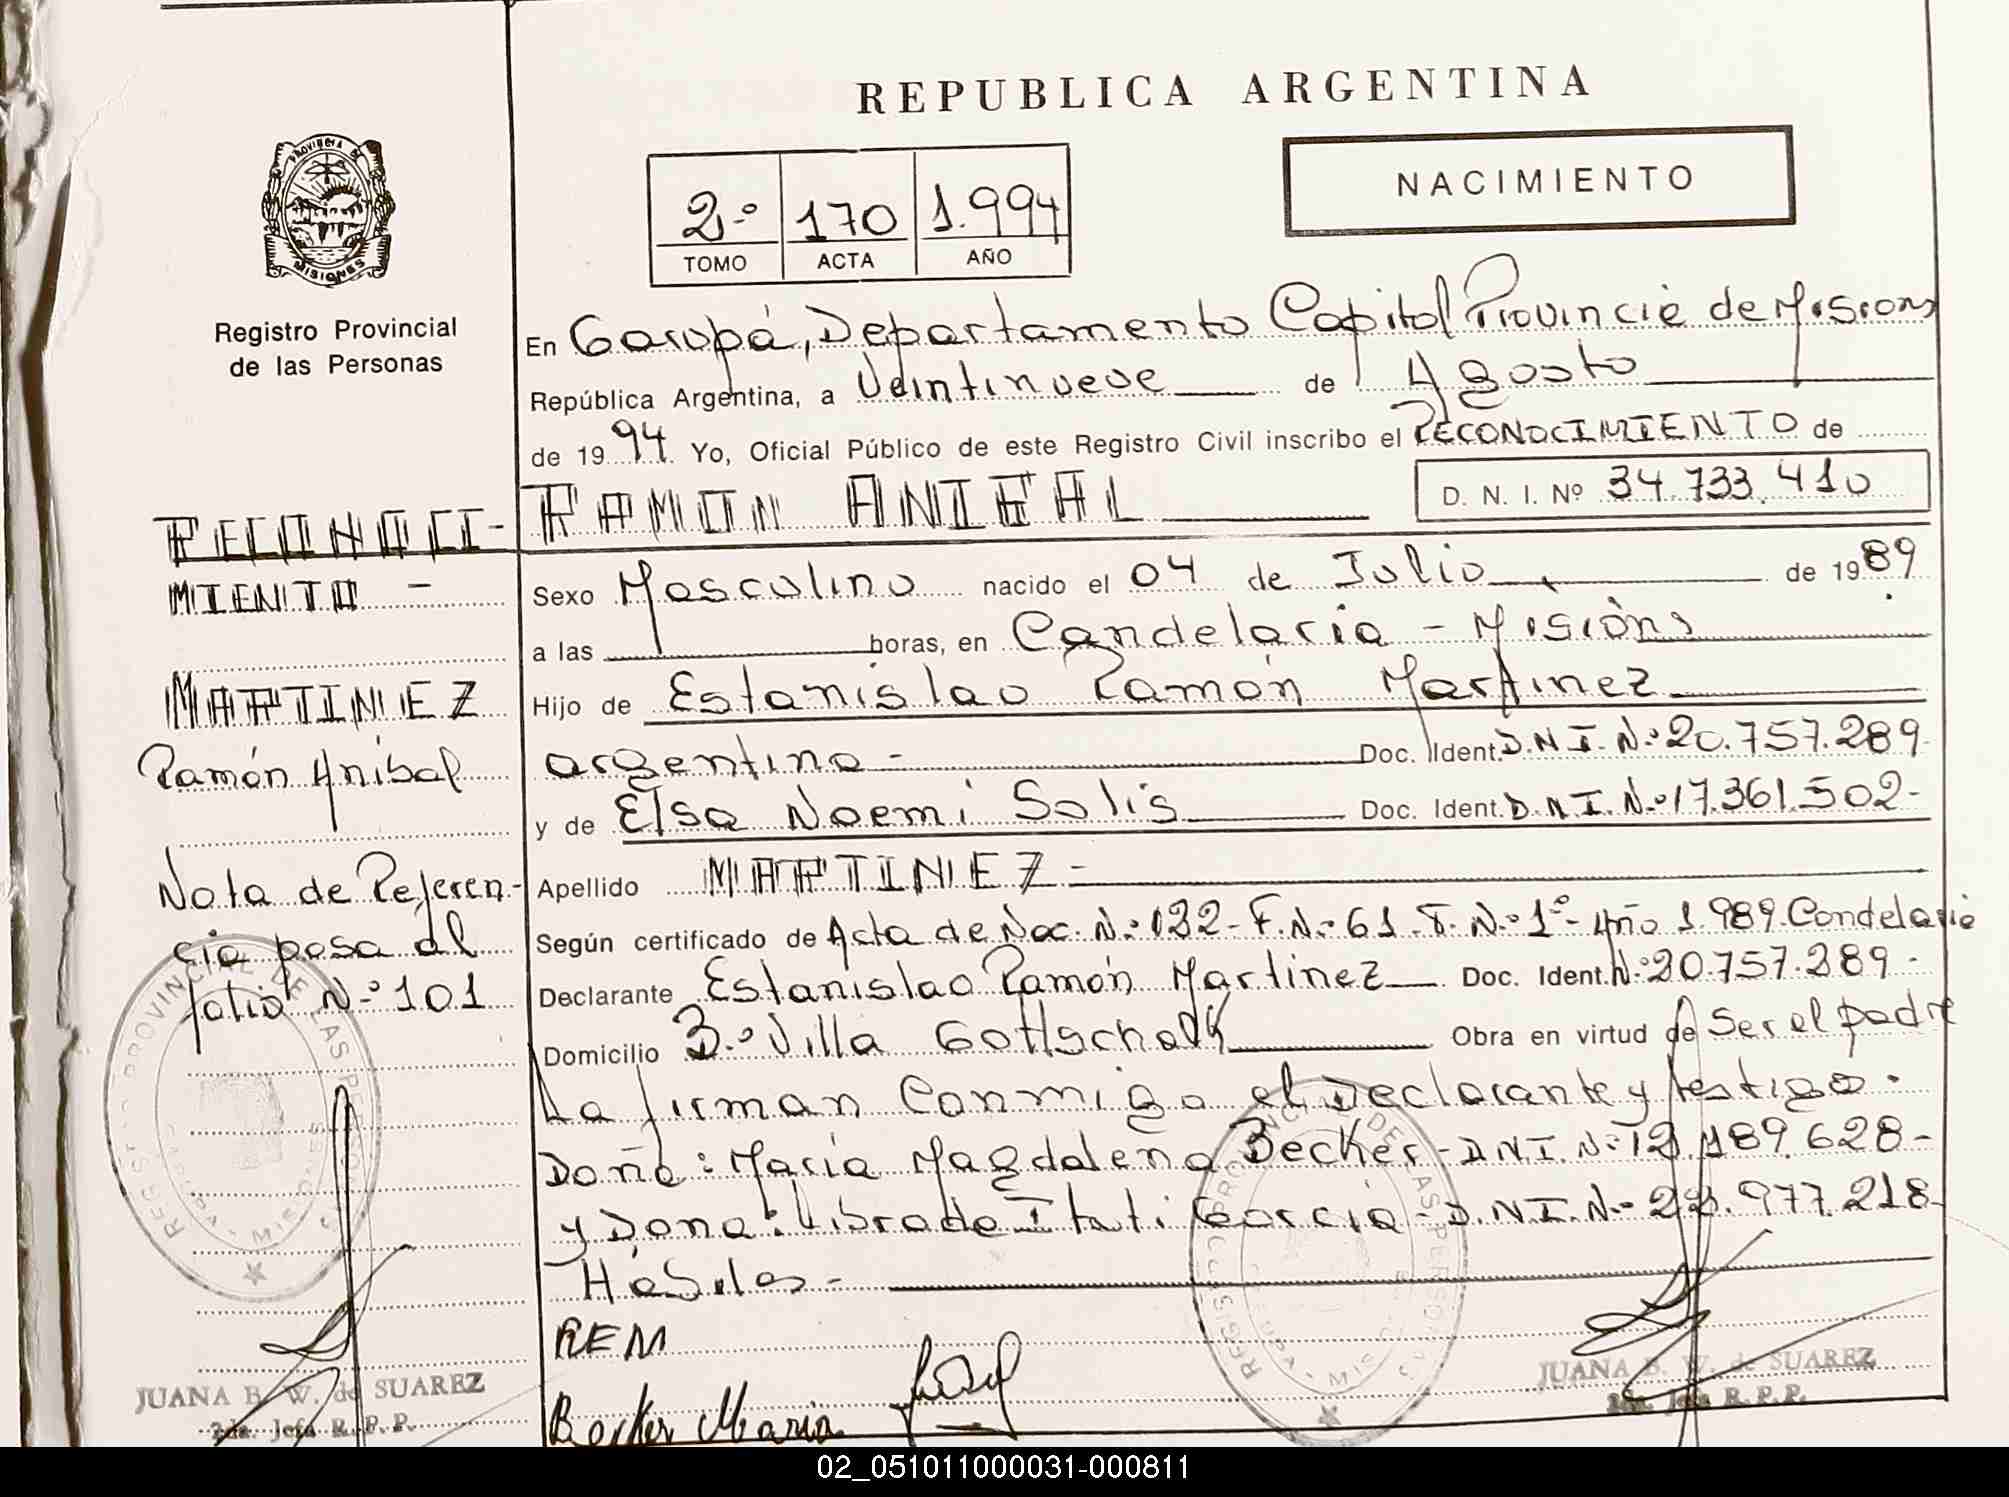 REPUBLICA ARGENTINA
NACIMIENTO
2º 170 1.994
TOMO ACTA AÑO
PROVINCIA DE
MISIONES
Registro Provincial
de las Personas
RECONOCI-
MIENTO -
MARTINEZ
Ramón Aníbal
Nota de Referen-
cia pasa al
folio Nº 101
En Garupá, Departamento Capital Provincia de Misiones
República Argentina, a Veintinueve de Agosto
de 1994 Yo, Oficial Público de este Registro Civil inscribo el RECONOCIMIENTO de
RAMON ANIBAL D. N. I. Nº 34.733.410
Sexo Masculino nacido el 04 de Julio de 1989
a las horas, en Candelaria - Misiones
Hijo de Estanislao Ramón Martínez
argentino - Doc. Ident. D.N.I. Nº 20.757.289
y de Elsa Noemí Solis Doc. Ident. D.N.I. Nº 17.361.502-
Apellido MARTINEZ -
Según certificado de Acta de Nac. Nº 132- F.Nº 61. T. Nº 1º- Año 1.989. Candelaria
Declarante Estanislao Ramón Martínez Doc. Ident. Nº 20.757.289-
Domicilio Bº Villa Gottschalk Obra en virtud de Ser el padre
La firman Conmigo el Declarante y testigos.
Doña: María Magdalena Becker - D.N.I. Nº 12.189.628-
y Doña: Librada Itati García - D.N.I. Nº 22.977.218-
Hábiles -
REM
Becker Maria
JUANA B. W. de SUAREZ
2da. Jefa R. P. P.
JUANA B. W. de SUAREZ
2da. Jefa R. P. P.
REGISTRO PROVINCIAL DE LAS PERSONAS
REGISTRO PROVINCIAL DE LAS PERSONAS
02_051011000031-000811